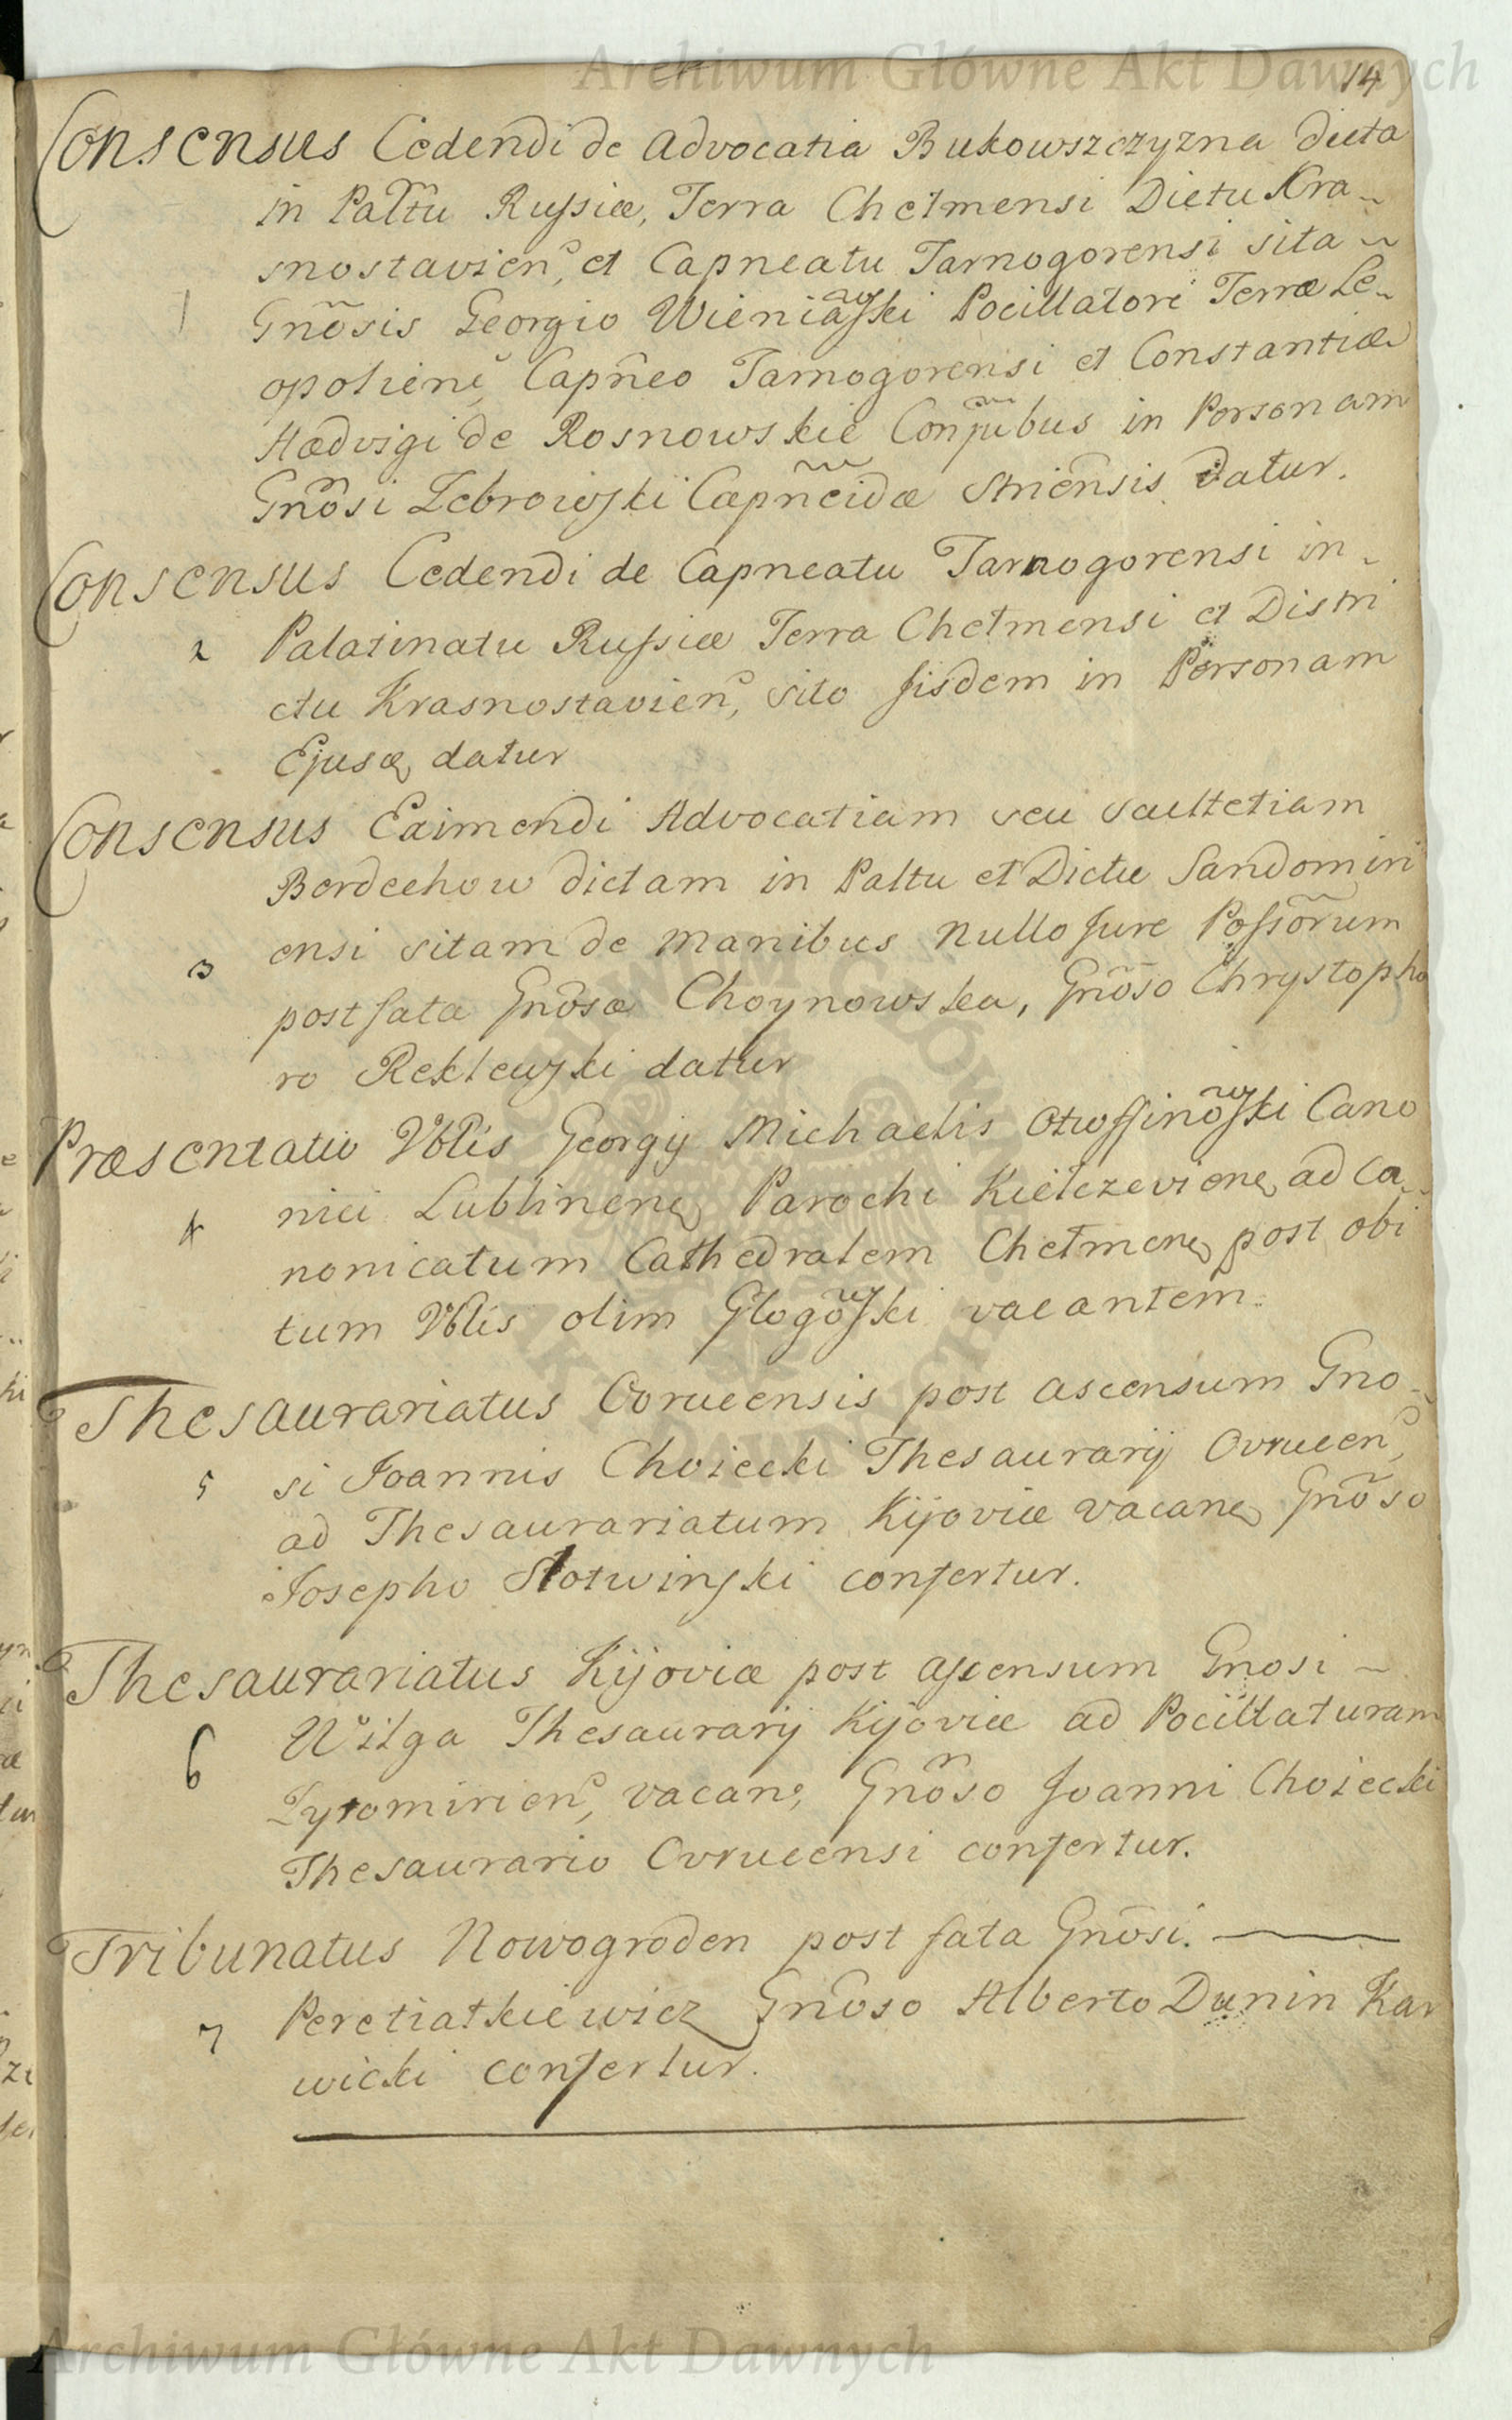 Archiwum Główne Akt Dawnych
14
Consensus Cedendi de Advocatia Bukowszczyzna dicta
in Paltũ Russiæ, Terra Chełmensi Dictu Kra-
snostavien, et Capneatu Tarnogorensi sita
1 Gnõsis Georgio Wieniawski Pocillatori Terræ Le-
opolien Capñeo Tarnogorensi et Constantiæ
Hædvigi de Rosnowskie Conjũibus in Personam
Gnõsi Zebrowski Capñeidæ Striensis datur.
Consensus Cedendi de Capneatu Tarnogorensi in
2 Palatinatu Russiæ Terra Chełmensi et Distri
ctu Krasnostavien, sito Iisdem in Personam
Ejusq datur
Consensus Eximendi Advocatiam seu Scultetiam
Bordechow dictam in Paltu et Dictu Sandomiri
3 ensi sitam de manibus nullo Jure Possõrum
post fata Gnõsæ Choynowska, Gnõso Chrystopho
ro Reklewski datur
Præsentatio Vblis Georgij Michaelis Otwssinowski Cano
4 nici Lublinen Parochi Kiełczevien ad Ca
nonicatum Cathedralem Chełmen post obi
tum Vblis olim Głogowski vacantem
Thesaurariatus Ovrucensis post ascensum Gno-
5 si Joannis Choiecki Thesaurarij Ovrucen,
ad Thesaurariatum Kijoviæ vacan Gnõso
Josepho Słotwinski confertur.
Thesaurariatus Kijoviæ post ascensum Gnosi
6 Wilga Thesaurarij Kijoviæ ad Pocillaturam
Zytomirien, vacan, Gnõso Joanni Choiecki
Thesaurario Ovrucensi confertur.
Tribunatus Nowogroden post fata Gnõsi.
7 Peretiatkiewicz Gnõso Alberto Dunin Kar
wicki confertur.
Archiwum Główne Akt Dawnych